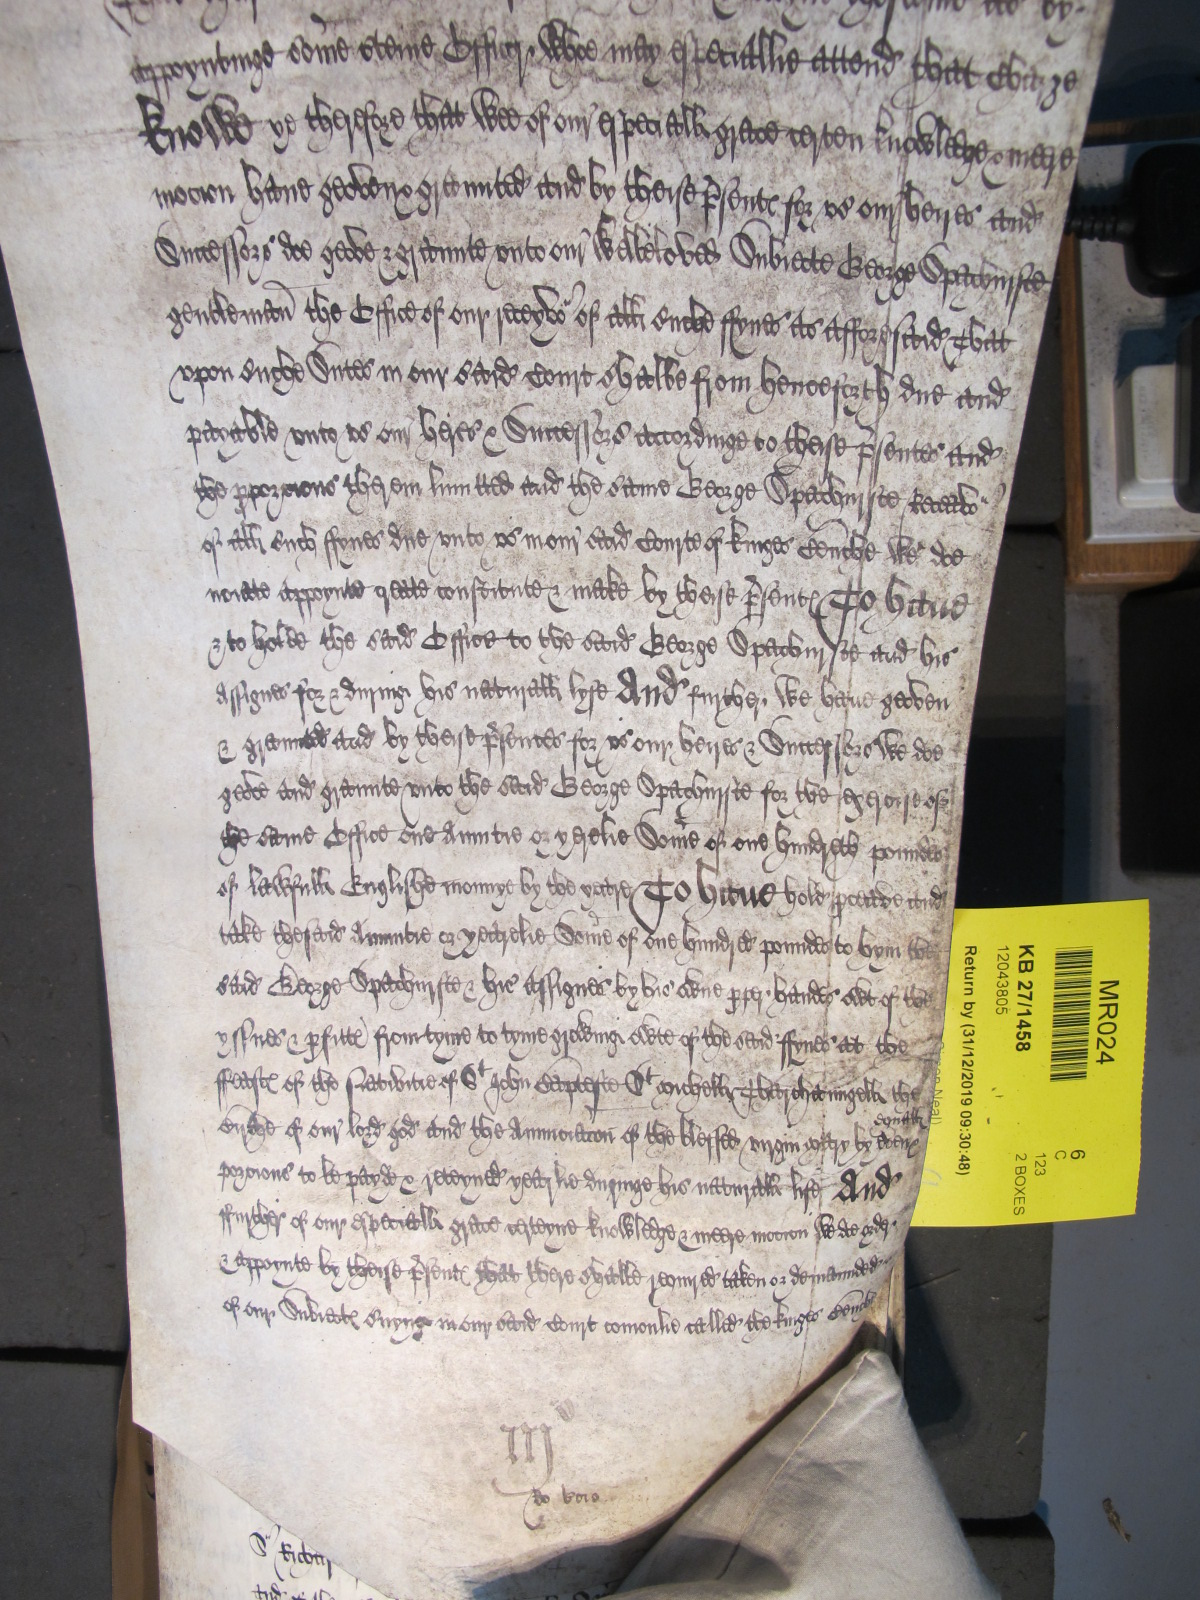 appoyntinge some Office Whoe may especiallie attend that Charge
Knowe ye therefore that Wee of our especiall grace certen knowledge & meere
mocion haue geoven & graunted and by theise p̃sent for vs our heires and
Successors doe geove & graunte vnto our Welbeloved Subiecte George Spachurste
gentleman the Office of our receyvo of all suche ffynes as afforesaid That
vpon suche Suites in our said Court shalbe from henceforth due and
payable vnto vs our heires & Successors accordinge to theise p̃sentes and
the pporcions therein limitted and the same George Spachurste Receavo
of all such ffynes due vnto vs in our said Courte of kinges Benche We doe
appoynte create constitute & make by theise p̃sent To haue
& to holde the said Office to the said George Spachurste and his
Assignes for & duringe his naturall lyfe And further We haue geoven
& graunted and by theise p̃sentes for vs our heires & Successors We doe
geove and graunte vnto the said George Spachurste for the exercise of
the same Office one Annuitie or yerelie Some of one hundreth poundes
of lawfull Englishe monnye by the yeare To haue hold pceave and
take the said Annuitie or yearelie Some of one hundred poundes to hym the
said George Spachurste & his assignes by his owne pper handes owt of the
yssues & pfitte from tyme to tyme growinge owte of the said ffynes at the
ffeast of the Natiuitie of St John Baptiste St Michell Tharchaungell the
Birthe of our lord god and the Annunciacion of the blessed virgin Mary by equall
porcions to be payde & receyued yearlie duringe his naturall life And
ffurther of our especiall grace certeyne knowledge & meere mocion We doe order
& appoynte by theise p̃sent that there shalbe required taken or demaunded
of our Subiect suynge in our said Court comonlie called the kinges Benche
MR024
KB 27/1458
12043805
Return by (31/12/2019 09:30:48)
6
C
123
2 BOXES